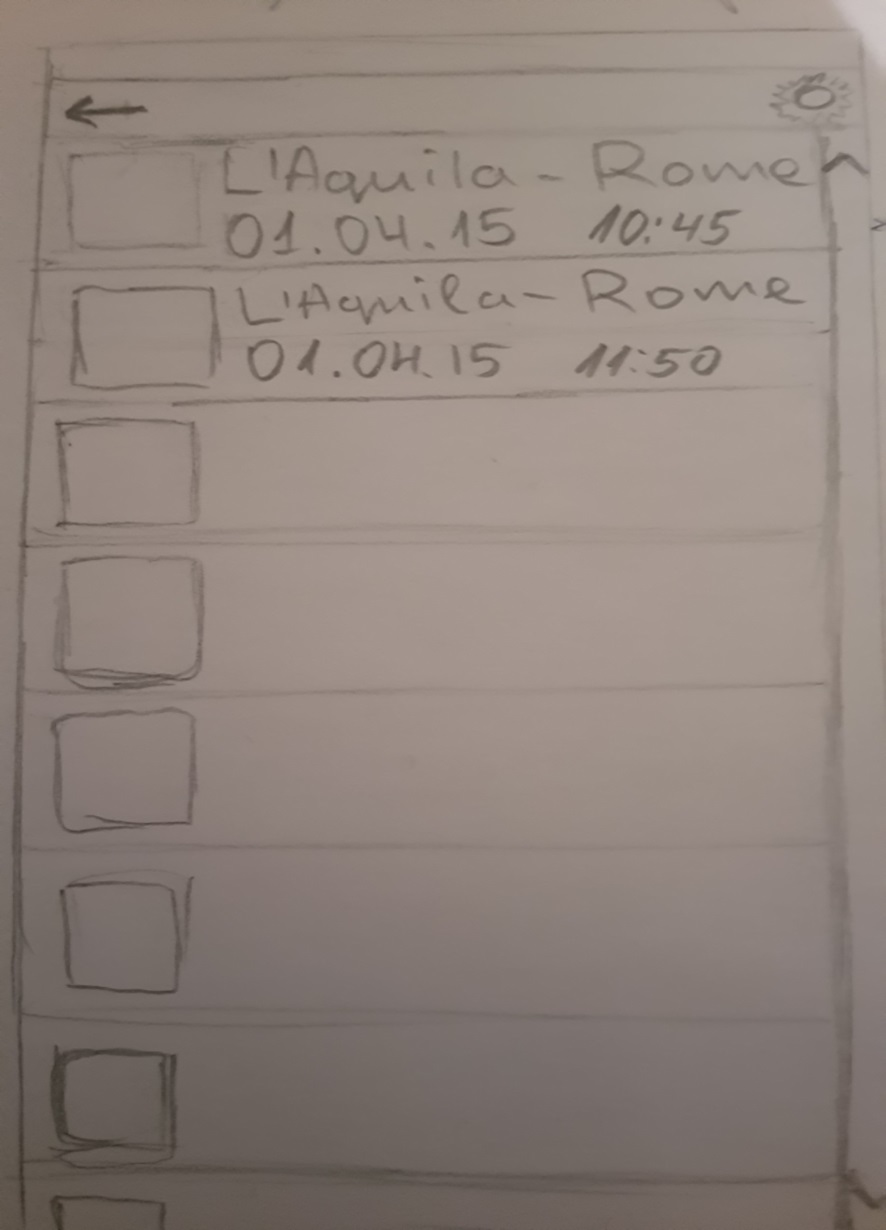 L'Aquila - Rome
01.04.15 10:45
L'Aquila - Rome
01.04.15 11:50